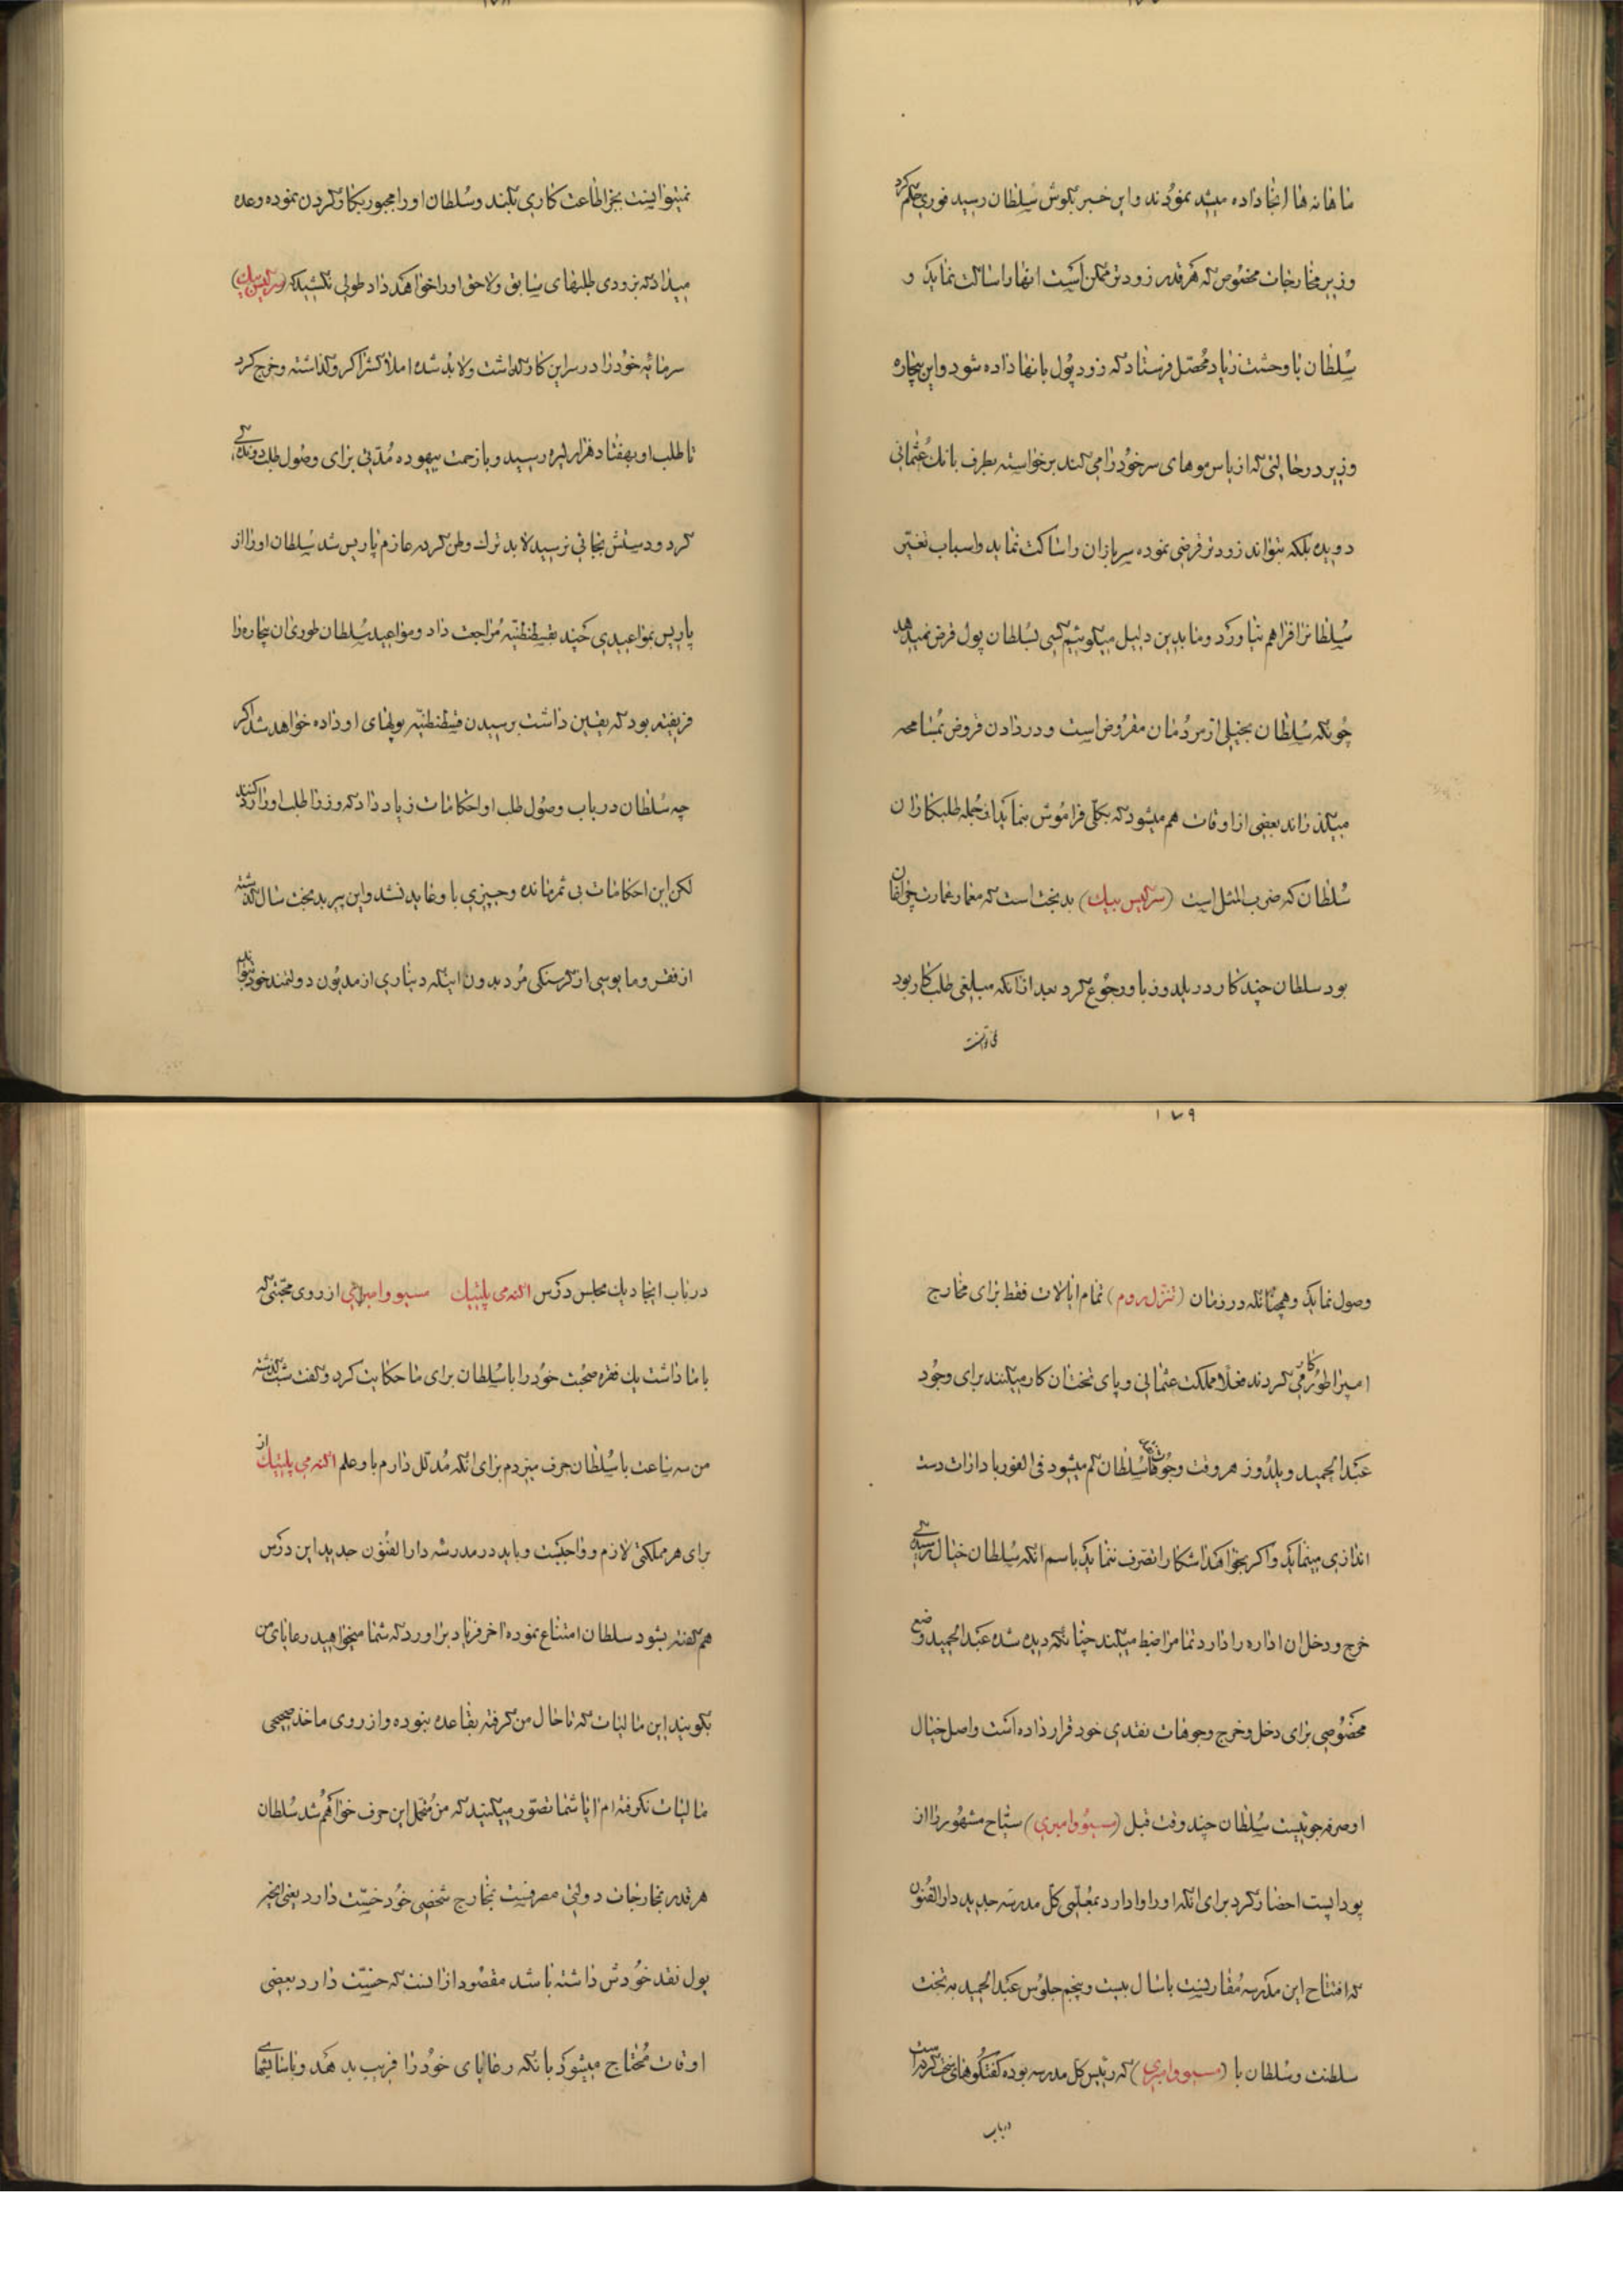 ماهانه ها انجا داده میشد نمودند واین خبر بگوش سلطان رسید فوری حکم کرد
وزیر مخارجات مخصوص که هرقدر زودتر ممکن است انها را ساکت نماید و
سلطان با وحشت زیاد محصل فرستاد که زود پول بانها داده شود واین بیچاره
وزیر در حالتی که از یاس موهای سر خود را می کند برخواسته بطرف بانک عثمانی
دویده بلکه بتواند زودتر قرضی نموده سربازان را ساکت نماید واسباب تغیر
سلطانرا فراهم نیاورد وما بدین دلیل میگوئیم کسی بسلطان پول قرض نمیدهد
چونکه سلطان بخیلی از مردمان مقروض است ودر دادن قروض بمسامحه
میگذراند بعضی از اوقات هم میشود که بکلی فراموش بنماید از جمله طلبکاران
سلطان که ضرب المثل است (سرکیس بیک) بدبخت است که معمار عمارت چراقان
بود سلطان چند کار در یلدوز باو رجوع کرد بعد از انکه مبلغی طلب کار بود
نمیتوانست بجز اطاعت کاری بکند وسلطان او را مجبور بکار کردن نموده وعده
میداد که بزودی طلبهای سابق ولاحق او را خواهد داد طولی نکشید که (سرکیس بیک)
سرمایه خود را در سر این کار گذاشت ولابد شده املاکشرا گرو گذاشته وخرج کرد
تا طلب او بهفتاد هزار لیره رسید وبا زحمت بیهوده مدتی برای وصول طلب دوندگی
کرد ودستش بجائی نرسید لابد ترک وطن کرده عازم پاریس شد سلطان او را از
پاریس بمواعیدی چند بقسطنطنیه مراجعت داد ومواعید سلطان طوری ان بیچاره را
فریفته بود که یقین داشت برسیدن قسطنطنیه پولهای او داده خواهد شد اگر
چه سلطان در باب وصول طلب او احکامات زیاد داد که وزرا طلب او را رد کنند
لکن این احکامات بی ثمر مانده وچیزی باو عاید نشد واین پیر بدبخت سال گذشته
از فقر ومایوسی از گرسنگی مرد بدون اینکه دیناری از مدیون دولتمند خود بتواند
۱۷۹
وصول نماید وهمچنانکه در زمان (تنزل روم) تمام ایالات فقط برای مخارج
امپراطور کار می کردند فعلا مملکت عثمانی وپای تختان کار میکنند برای وجود
عبدالحمید ویلدوز هر وقت وجوهات سلطان کم میشود فی الفور بادارات دست
اندازی مینماید واگر بخواهد اشکارا تصرف ننماید باسم انکه سلطان خیال رسیدگی
خرج ودخل ان اداره را دارد تماما ضبط میکند چنانکه دیده شده عبدالحمید وضع
مخصوصی برای دخل وخرج وجوهات نقدی خود قرار داده است واصل خیال
او صرفه جوئیست سلطان چند وقت قبل (مسیو وامبری) سیاح مشهور را از
بوداپست احضار کرد برای انکه او را وادارد بمعلمی کل مدرسه جدید دارالفنون
که افتتاح این مدرسه مقارنست با سال بیست وپنجم جلوس عبدالحمید به تخت
سلطنت وسلطان با (مسیو وامبری) که رئیس کل مدرسه بوده گفتگوهای سخت کرده است
در باب
در باب ایجاد یک مجلس درس اکنمی پلتیک مسیو وامبری از روی محبتی که
با ما داشت یک فقره صحبت خود را با سلطان برای ما حکایت کرد وگفت شب گذشته
من سه ساعت با سلطان حرف میزدم برای انکه مدلل دارم باو علم اکنمی پلتیک از
برای هر مملکتی لازم وواجبست وباید در مدرسه دارالفنون جدید این درس
هم گفته بشود سلطان امتناع نموده اخر فریاد براورد که شما میخواهید رعایای من
بگویند این مالیات که تا حال من گرفته بقاعده نبوده واز روی ماخذ صحیحی
مالیات نگرفته ام ایا شما تصور میکنید که من متحمل این حرف خواهم شد سلطان
هر قدر بخارجات دولتی مصرفست بخارج شخصی خود خسیت دارد یعنی بغیر
پول نقد خودش داشته باشد مقصود از انست که خسیت دارد بعضی
اوقات محتاج میشود بانکه رعایای خود را فریب بدهد وباسانی